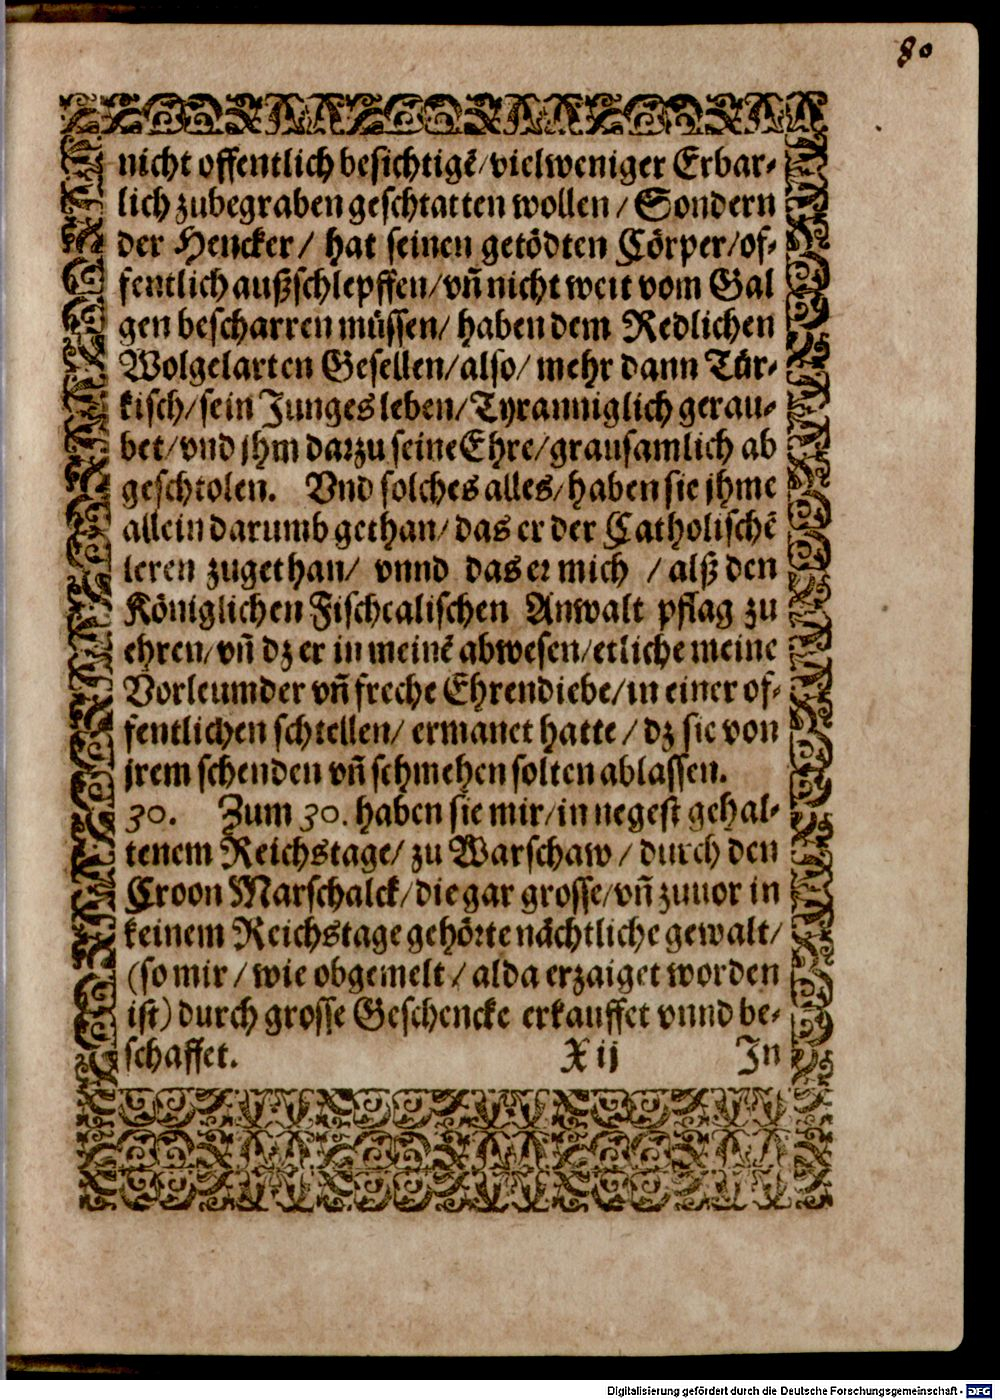 80
nicht offentlich besichtigẽ/vielweniger Erbar-
lich zubegraben geschtatten wollen / Sondern
der Hencker / hat seinen getödten Cörper/of-
fentlich außschlepffen/vñ nicht weit vom Gal
gen bescharren müssen/ haben dem Redlichen
Wolgelarten Gesellen/also/ mehr dann Tür-
kisch/sein Junges leben/Tyranniglich gerau-
bet/vnd jhm darzu seine Ehre/grausamlich ab
geschtolen. Vnd solches alles/haben sie jhme
allein darumb gethan/das er der Catholischẽ
leren zugethan/ vnnd das er mich / alß den
Königlichen Fischcalischen Anwalt pflag zu
ehren/vñ dz er in meinẽ abwesen/etliche meine
Vorleumder vñ freche Ehrendiebe/in einer of-
fentlichen schtellen/ ermanet hatte / dz sie von
jrem schenden vñ schmehen solten ablassen.
30. Zum 30. haben sie mir/in negest gehal-
tenem Reichstage/ zu Warschaw / durch den
Croon Marschalck/die gar grosse/vñ zuuor in
keinem Reichstage gehörte nächtliche gewalt/
(so mir / wie obgemelt / alda erzaiget worden
ist) durch grosse Geschencke erkauffet vnnd be-
schaffet. X ij In
Digitalisierung gefördert durch die Deutsche Forschungsgemeinschaft - DFG